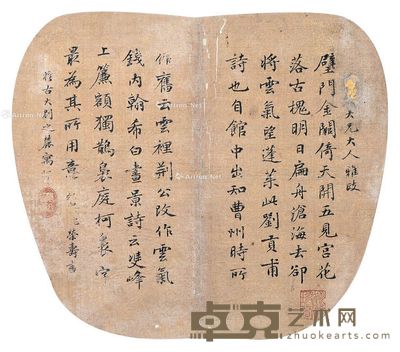 大兄大人雅政
璧門金闕倚天開五見宮花
落古槐明日扁舟滄海去卻
將雲氣望蓬萊此劉貢甫
詩也自館中出知曹州時所
作舊云雲裡荊公改作雲氣
錢內翰希白晝景詩云雙峰
上簾額獨鵲裊庭柯裊字
最為其所用意
卓克艺术网
www.zhuokearts.com